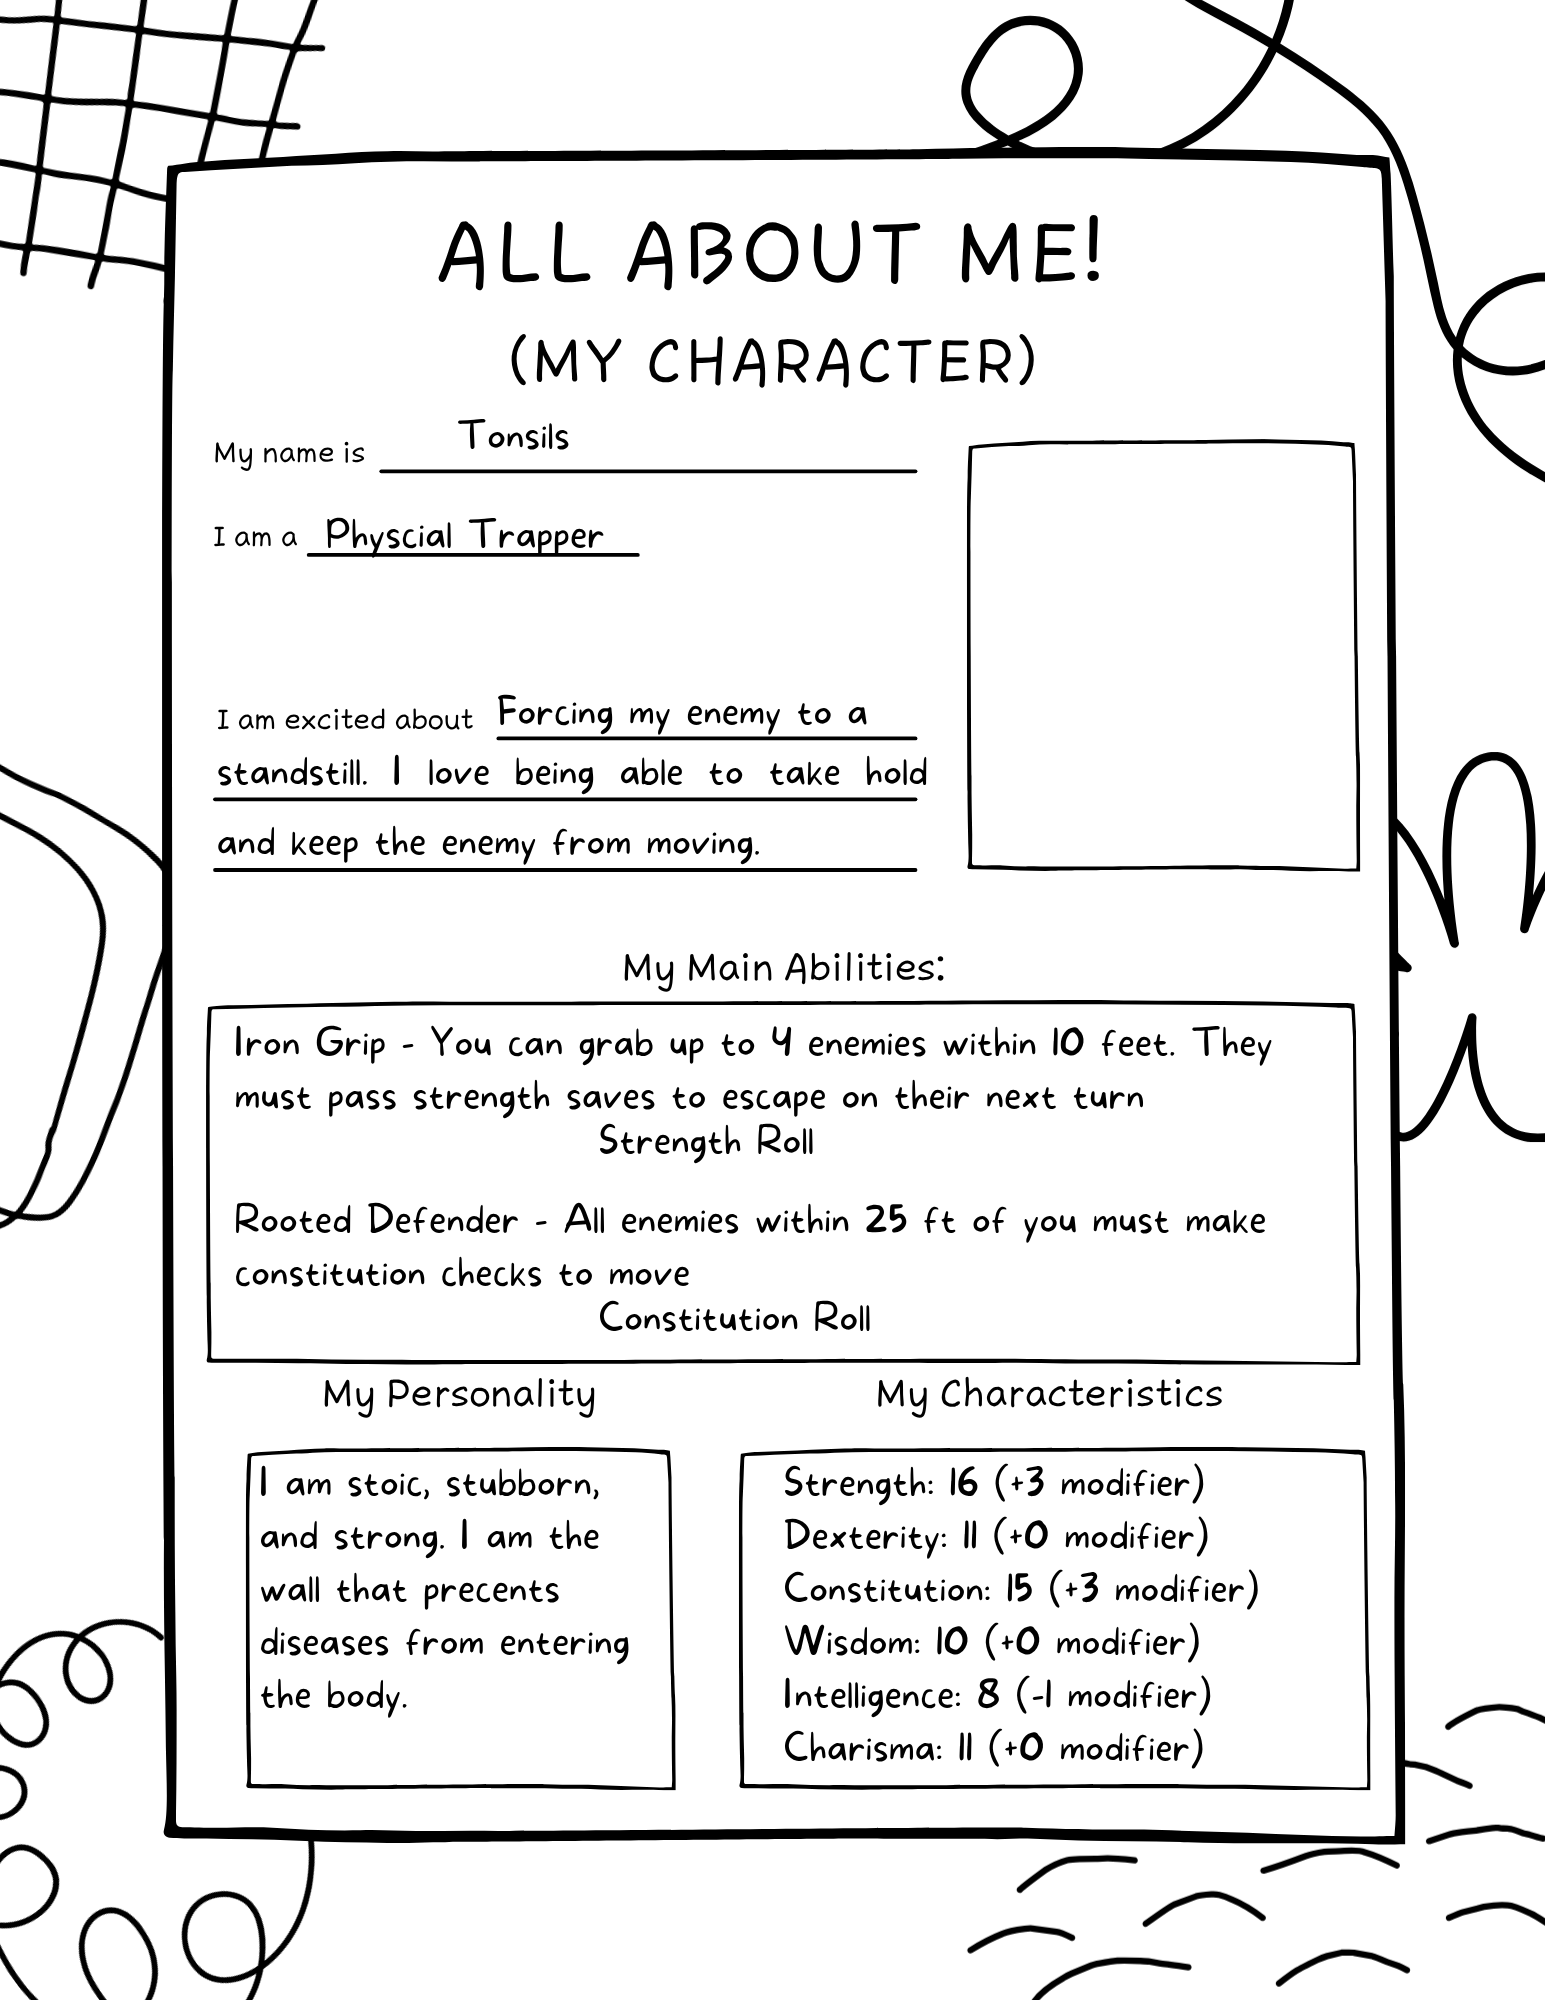 ALL ABOUT ME!
(MY CHARACTER)
My name is Tonsils
I am a Physcial Trapper
I am excited about Forcing my enemy to a
standstill. I love being able to take hold
and keep the enemy from moving.
My Main Abilities:
Iron Grip - You can grab up to 4 enemies within 10 feet. They
must pass strength saves to escape on their next turn
Strength Roll
Rooted Defender - All enemies within 25 ft of you must make
constitution checks to move
Constitution Roll
My Personality
I am stoic, stubborn,
and strong. I am the
wall that precents
diseases from entering
the body.
My Characteristics
Strength: 16 (+3 modifier)
Dexterity: 11 (+0 modifier)
Constitution: 15 (+3 modifier)
Wisdom: 10 (+0 modifier)
Intelligence: 8 (-1 modifier)
Charisma: 11 (+0 modifier)